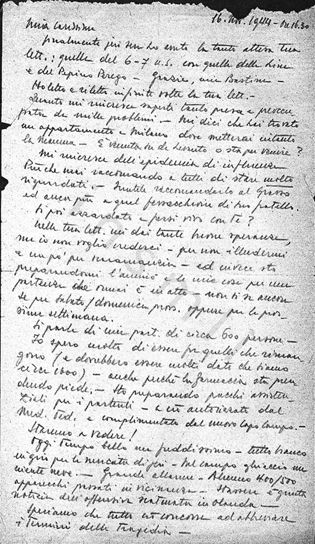 16. Nov. 1944 - Ore 16.30
Mia carissima
finalmente jeri sera ho avuto la tanto attesa tua
lett.; quella del 6-7 u.s. con quella delle Zine
e del Peppino Borgo - Grazie, mia Bastine -
Ho letto e riletto infinite volte la tua lett. -
mi incresce saperti tanto presa e preoccu
pata da mille problemi - Mi dici che hai trovato
un appartamento a Milano dove metterai intanto
la Mamma - E venuta su da o sta per venire?
Mi incresce dell'epidemia di influenza
Più che mai raccomando a tutti di stare molto
riguardati - Inutile raccomandarlo al
ed ancor più a quel di tuo fratello.
Si poi azzardato a farsi vivo con te?
Nella tua lett. mi dai tante buone speranze,
ma io non voglio crederci - per non illudermi
e un po' per scaramanzia - ed invece sto
preparandomi l'animo e le mie cose per una
partenza che ormai è in atto - non si sa ancora
se per sabato/domenica pross. oppure per la pros
sima settimana.
Si parla di una part. di circa 600 persone -
Io spero molto di essere fra quelli che riman
gono (e dovrebbero essere molti dato che siamo
circa 1600) - anche perché la farmacia sta pren
dendo piede - Sto preparando pacchi assisten
ziali per i partenti - e autorizzato dal
Med. Ted. e complimentato dal nuovo Capo Campo -
Staremo a vedere!
Oggi tempo bello ma freddissimo - tutto bianco
in giro per la nevicata di jeri - Sul campo ghiaccio ma
niente neve - Grande allarme - Almeno 400/500
apparecchi passati in vicinanza - Stasera è giunta
notizia dell'offensiva in Olanda -
Speriamo che tutto ciò concorra ad abbreviare
i termini della tragedia -